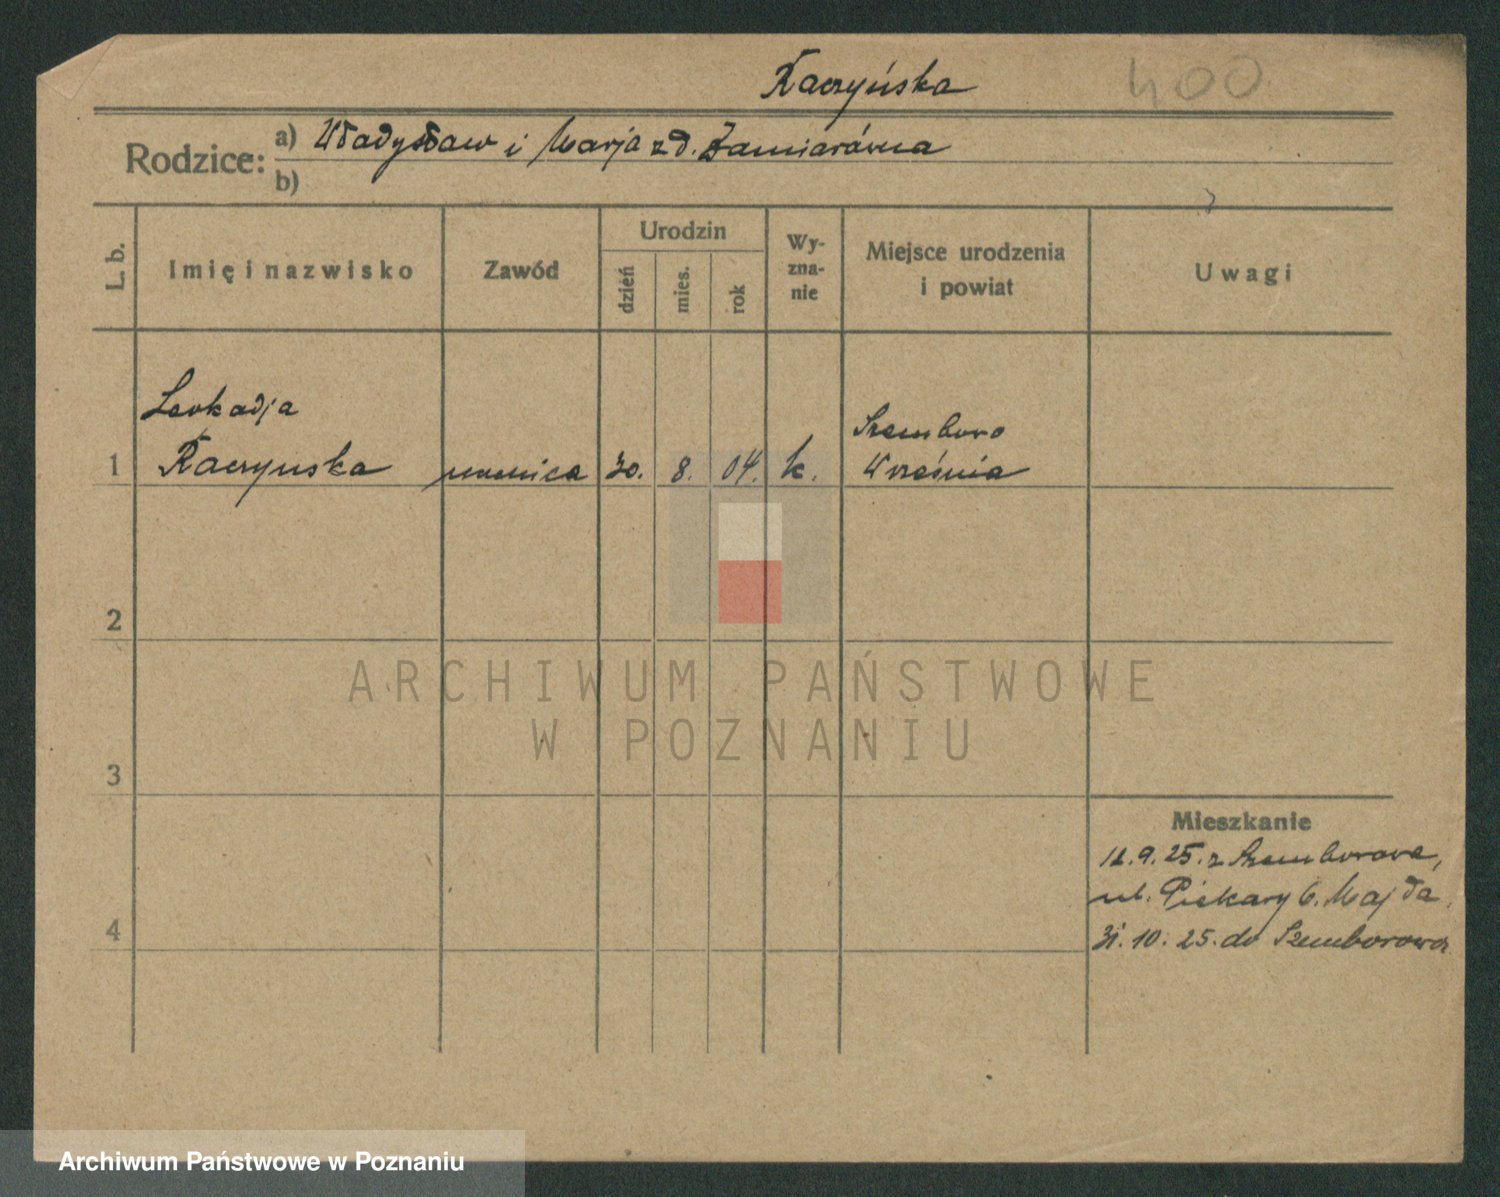 Kaczyńska 400
Rodzice: a) Władysław i Marja z d. Zamiarówna
b)
L. b. Imię i nazwisko Zawód Urodzin dzień mies. rok Wy-zna-nie Miejsce urodzenia i powiat Uwagi
Leokadja Szemboro
1 Kaczynska uczenica 30. 8. 04. k. Września
2
3
Mieszkanie
12.9.25. z Szemborowa,
ul. Piekary 6. Majda
4 31.10.25. do Szemborowa
ARCHIWUM PAŃSTWOWE
W POZNANIU
Archiwum Państwowe w Poznaniu